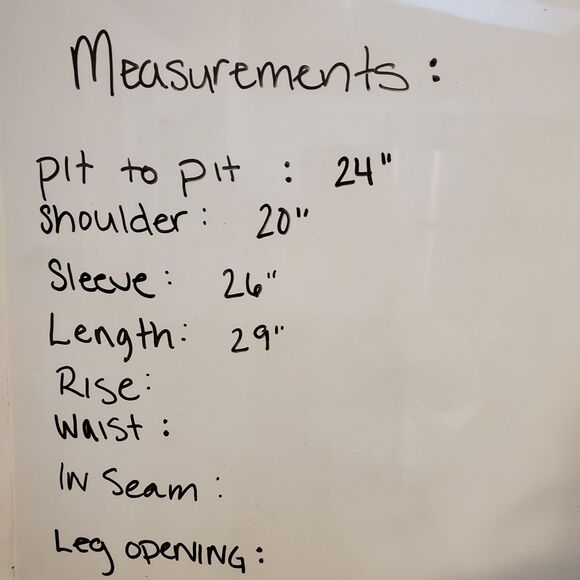 Measurements:
pit to pit : 24"
Shoulder: 20"
Sleeve: 26"
Length: 29"
Rise:
Waist:
In Seam:
Leg opening: